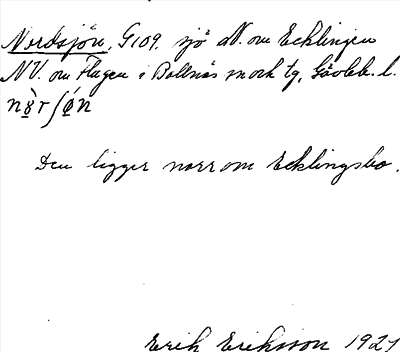 Nordsjön, G109. sjö N. om Ecklingen
NV. om Flugen i Bollnäs sn och tg, Gävleb. l.
Den ligger norr om Ecklingsbo.
Erik Eriksson 1927